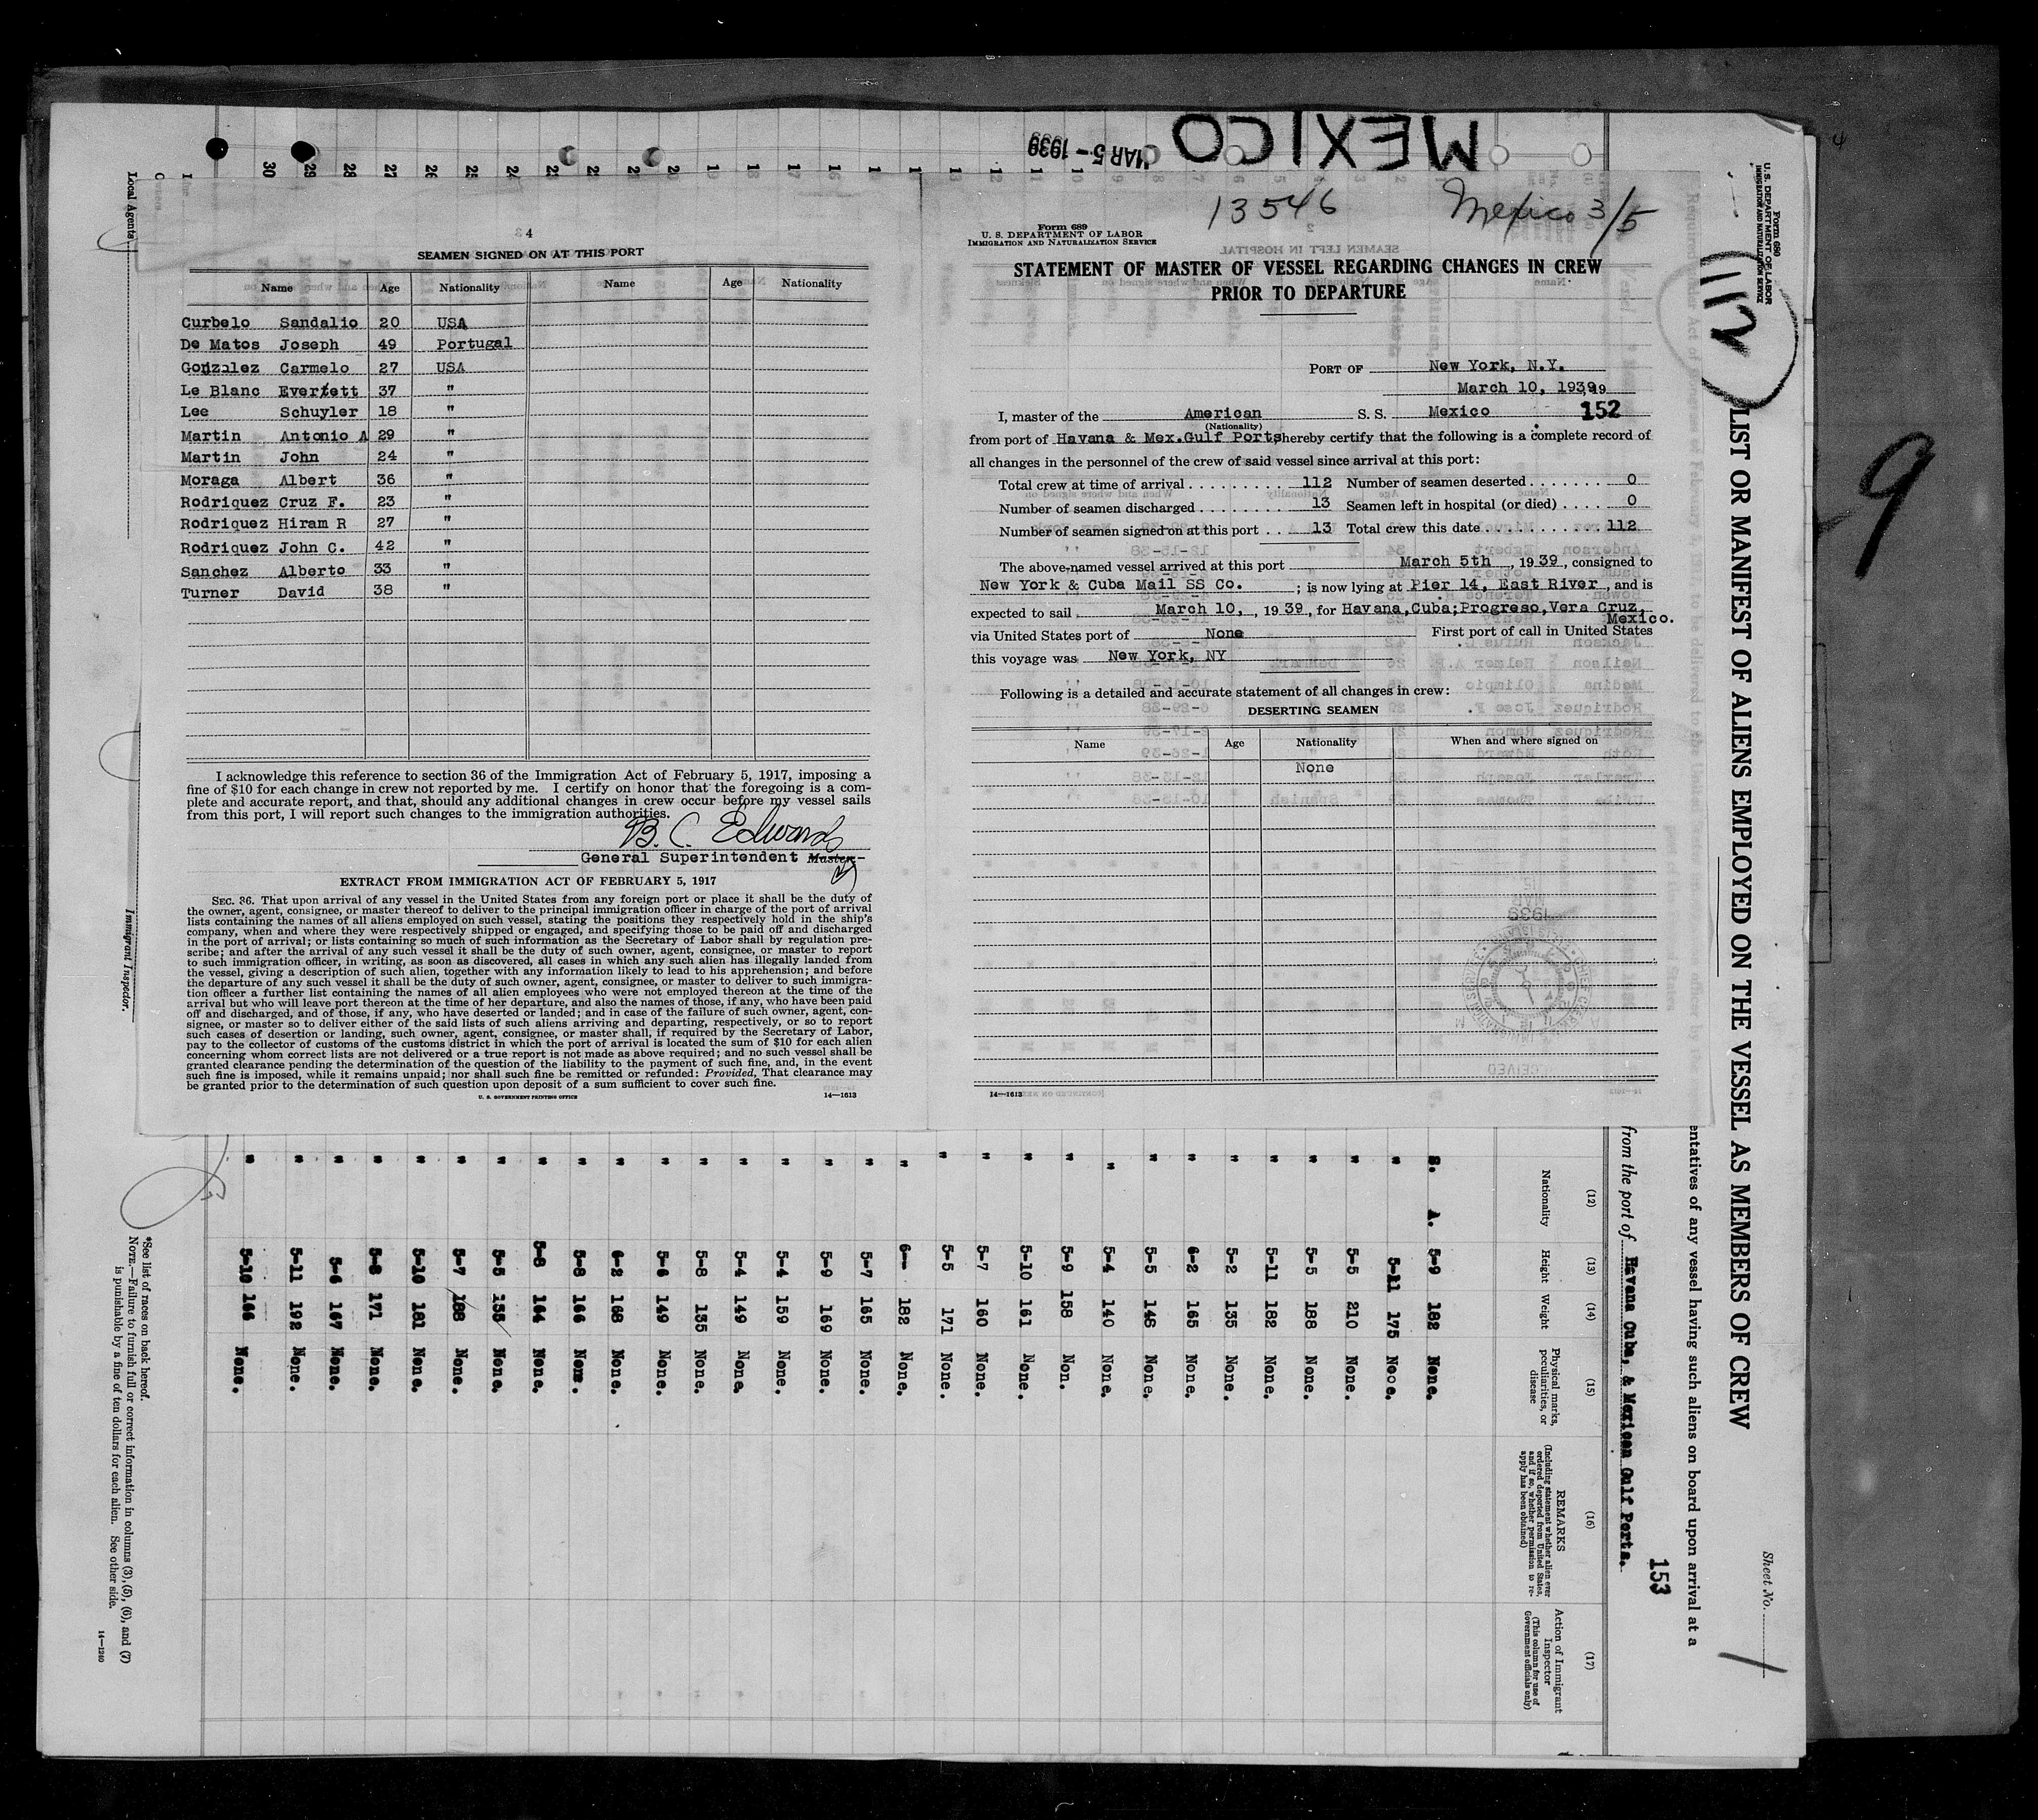 MEXICO
MAR 5 - 1939
30 29 28 27 26 25 24
4
SEAMEN SIGNED ON AT THIS PORT
Name Age Nationality Name Age Nationality
Curbelo Sandalio 20 USA
De Matos Joseph 49 Portugal
Gonzalez Carmelo 27 USA
Le Blanc Everett 37 "
Lee Schuyler 18 "
Martin Antonio A 29 "
Martin John 24 "
Moraga Albert 36 "
Rodriquez Cruz F. 23 "
Rodriquez Hiram R 27 "
Rodriquez John C. 42 "
Sanchez Alberto 33 "
Turner David 38 "
I acknowledge this reference to section 36 of the Immigration Act of February 5, 1917, imposing a
fine of $10 for each change in crew not reported by me. I certify on honor that the foregoing is a com-
plete and accurate report, and that, should any additional changes in crew occur before my vessel sails
from this port, I will report such changes to the immigration authorities.
B. C. Edwards
General Superintendent Master
EXTRACT FROM IMMIGRATION ACT OF FEBRUARY 5, 1917
SEC. 36. That upon arrival of any vessel in the United States from any foreign port or place it shall be the duty of
the owner, agent, consignee, or master thereof to deliver to the principal immigration officer in charge of the port of arrival
lists containing the names of all aliens employed on such vessel, stating the positions they respectively hold in the ship's
company, when and where they were respectively shipped or engaged, and specifying those to be paid off and discharged
in the port of arrival; or lists containing so much of such information as the Secretary of Labor shall by regulation pre-
scribe; and after the arrival of any such vessel it shall be the duty of such owner, agent, consignee, or master to report
to such immigration officer, in writing, as soon as discovered, all cases in which any such alien has illegally landed from
the vessel, giving a description of such alien, together with any information likely to lead to his apprehension; and before
the departure of any such vessel it shall be the duty of such owner, agent, consignee, or master to deliver to such immigra-
tion officer a further list containing the names of all alien employees who were not employed thereon at the time of the
arrival but who will leave port thereon at the time of her departure, and also the names of those, if any, who have been paid
off and discharged, and of those, if any, who have deserted or landed; and in case of the failure of such owner, agent, con-
signee, or master so to deliver either of the said lists of such aliens arriving and departing, respectively, or so to report
such cases of desertion or landing, such owner, agent, consignee, or master shall, if required by the Secretary of Labor,
pay to the collector of customs of the customs district in which the port of arrival is located the sum of $10 for each alien
concerning whom correct lists are not delivered or a true report is not made as above required; and no such vessel shall be
granted clearance pending the determination of the question of the liability to the payment of such fine, and, in the event
such fine is imposed, while it remains unpaid; nor shall such fine be remitted or refunded: Provided, That clearance may
be granted prior to the determination of such question upon deposit of a sum sufficient to cover such fine.
U. S. GOVERNMENT PRINTING OFFICE 14—1613
13546 Mexico 3/5
Form 689
U. S. DEPARTMENT OF LABOR
IMMIGRATION AND NATURALIZATION SERVICE
STATEMENT OF MASTER OF VESSEL REGARDING CHANGES IN CREW
PRIOR TO DEPARTURE
PORT OF New York, N.Y.
March 10, 1939
152
I, master of the American S. S. Mexico
(Nationality)
from port of Havana & Mex.Gulf Ports hereby certify that the following is a complete record of
all changes in the personnel of the crew of said vessel since arrival at this port:
Total crew at time of arrival 112 Number of seamen deserted 0
Number of seamen discharged 13 Seamen left in hospital (or died) 0
Number of seamen signed on at this port 13 Total crew this date 112
The above-named vessel arrived at this port March 5th, 1939, consigned to
New York & Cuba Mail SS Co. ; is now lying at Pier 14, East River, and is
expected to sail March 10, 1939, for Havana,Cuba;Progreso,Vera Cruz,
Mexico.
via United States port of None First port of call in United States
this voyage was New York, NY
Following is a detailed and accurate statement of all changes in crew:
DESERTING SEAMEN
Name Age Nationality When and where signed on
None
14—1613
Form 680
U. S. DEPARTMENT OF LABOR
IMMIGRATION AND NATURALIZATION SERVICE
112
LIST OR MANIFEST OF ALIENS EMPLOYED ON THE VESSEL AS MEMBERS OF CREW
Sheet No.
entatives of any vessel having such aliens on board upon arrival at a
153
from the port of Havana Cuba, & Mexican Gulf Ports.
(12) (13) (14) (15) (16) (17)
Nationality Height Weight Physical marks, peculiarities, or disease
REMARKS
(Including statement whether alien ever ordered deported from United States, and if so, whether permission to re-apply has been obtained)
Action of Immigrant Inspector
(This column for use of Government officials only)
S. A. 5-9 182 None.
" 5-11 175 None.
" 5-5 210 None.
" 5-5 188 None.
" 5-11 182 None.
" 5-2 135 None.
" 6-2 165 None.
" 5-5 148 None.
" 5-4 140 None.
" 5-9 158 Non.
" 5-10 161 None.
" 5-7 160 None.
" 5-5 171 None.
" 6-- 182 None.
" 5-7 165 None.
" 5-9 169 None.
" 5-4 159 None.
" 5-4 149 None.
" 5-8 135 None.
" 5-6 149 None.
" 6-2 168 None.
" 5-8 166 None.
" 5-8 164 None.
" 5-5 135 None.
" 5-7 188 None.
" 5-10 181 None.
" 5-8 171 None.
" 5-6 167 None.
" 5-11 192 None.
" 5-10 166 None.
Local Agents
Immigrant Inspector.
*See list of races on back hereof.
NOTE.—Failure to furnish full or correct information in columns (3), (5), (6), and (7)
is punishable by a fine of ten dollars for each alien. See other side.
14—1240
9